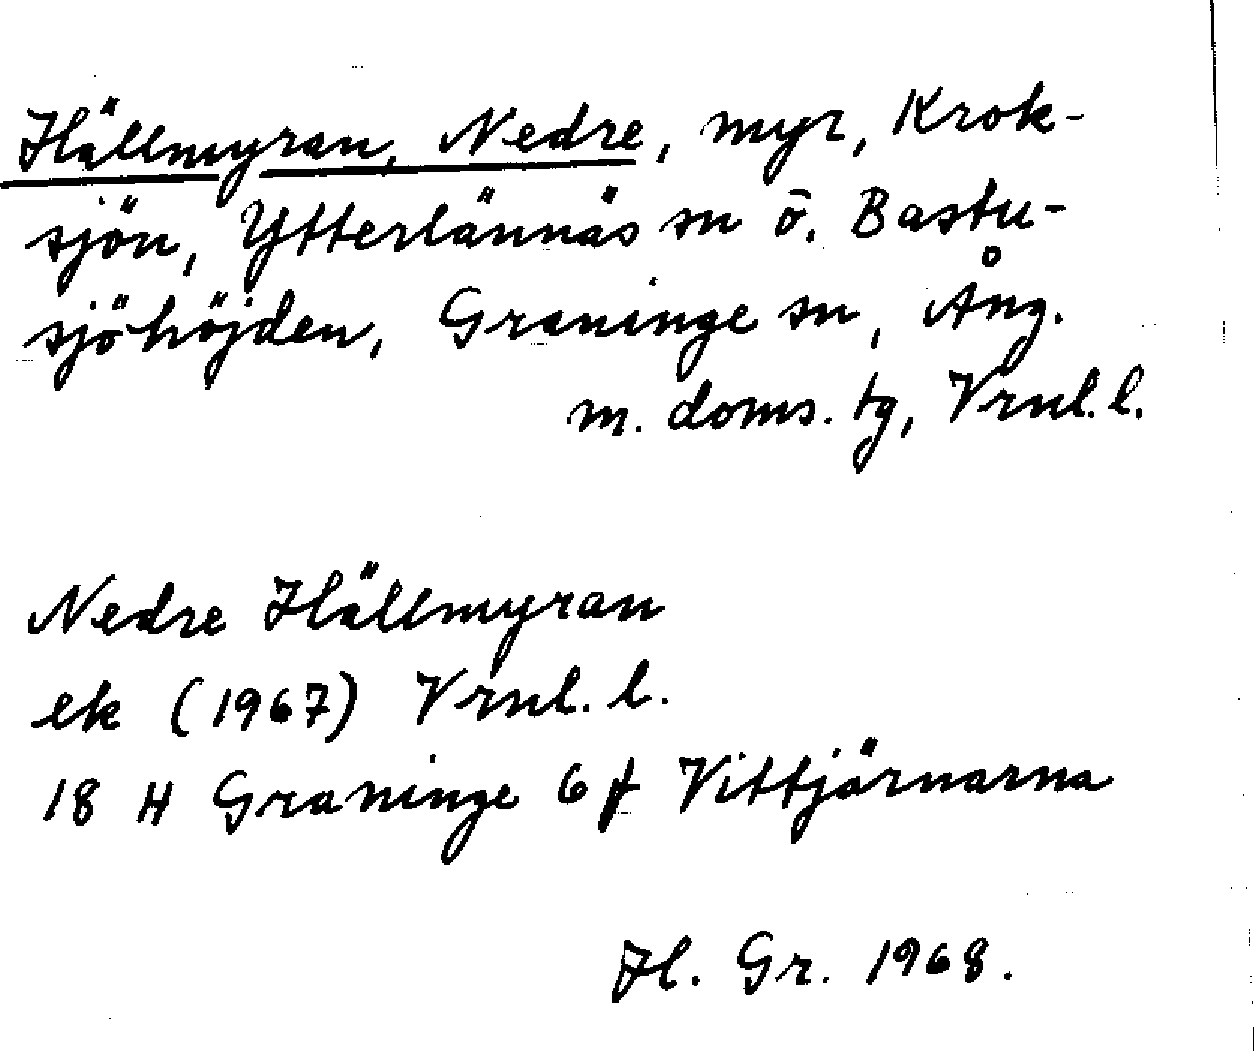 Hällmyran, Nedre, myr, Krok-
sjön, Ytterlännäs sn ö. Bastu-
sjöhöjden, Graninge sn, Ång.
m. doms. tg, Vrnl. l.
Nedre Hällmyran
ek (1967) Vrnl. l.
18 H Graninge 6 f Vittjärnarna
Hl. Gr. 1968.